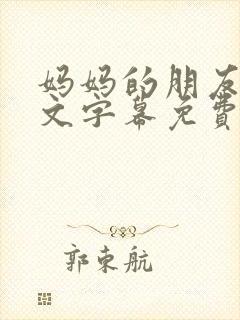 妈妈的朋友
文字幕免費
郭束航